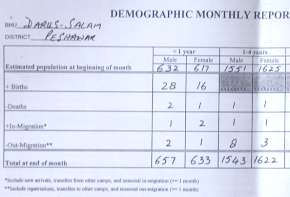 DEMOGRAPHIC MONTHLY REPOR
BHU DARUS-SALAM
DISTRICT PESHAWAR
<1 year 1-4 years
Male Female Male Female
Estimated population at beginning of month 632 617 1551 1625
+ Births 28 16
-Deaths 2 1 1 1
+In-Migration* 1 2 1 1
-Out-Migration** 2 1 8 3
Total at end of month 657 633 1543 1622
*Include new arrivals, transfers from other camps, and seasonal in-migration (>= 1 month)
**Include repatriations, transfers to other camps, and seasonal out-migration (>= 1 month)